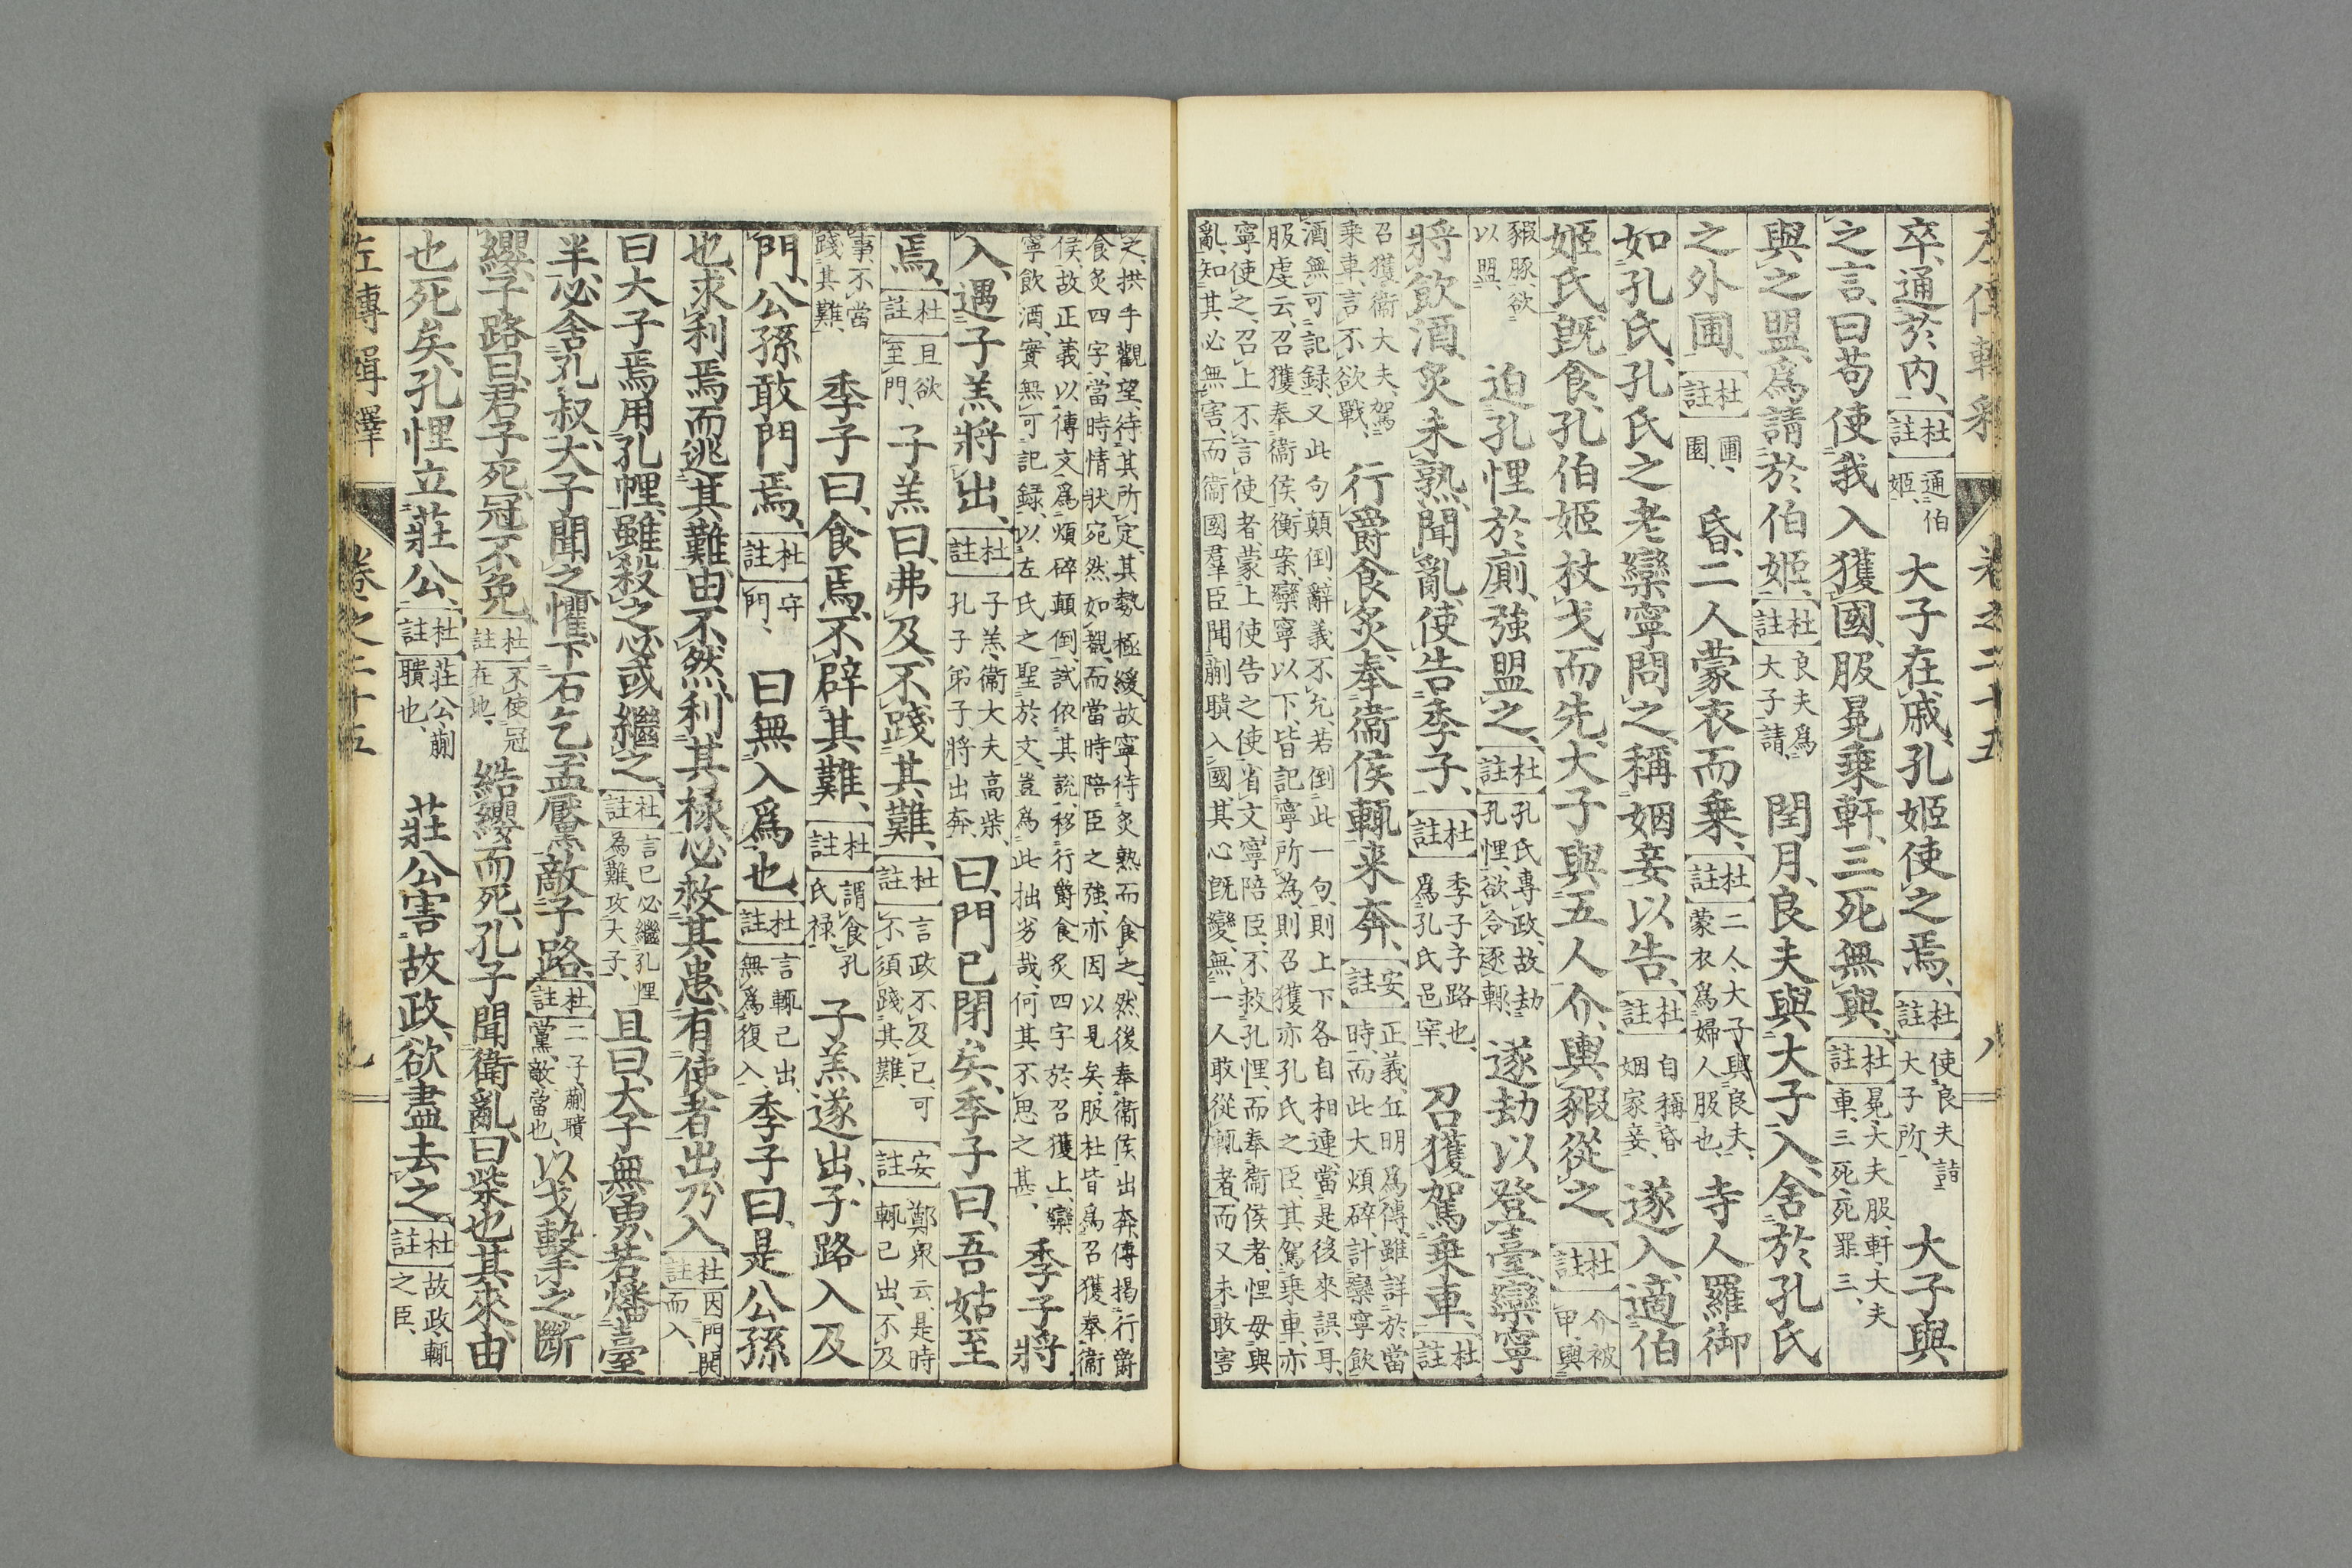 左傳輯釋 卷之二十五 八
卒、通於內、杜註通伯姬、大子在戚、孔姬使之焉、杜註使良夫詣大子所、大子與
之言、曰苟使我入獲國、服冕乘軒、三死無與、杜註冕、大夫服、軒、大夫車、三死、死罪三、
與之盟、爲請於伯姬、杜註良夫爲大子請、閏月、良夫與大子入、舍於孔氏
之外圃、杜註圃、園、昏、二人蒙衣而乘、杜註二人、大子與良夫、蒙衣爲婦人服也、寺人羅御
如孔氏、孔氏之老欒寧問之、稱姻妾以告、杜註自稱昏姻家妾、遂入、適伯
姬氏、既食、孔伯姬杖戈而先、大子與五人介、輿豭從之、杜註介、被甲、輿
豭豚、欲以盟、迫孔悝於廁、強盟之、杜註孔氏專政、故劫孔悝、欲令逐輒、遂劫以登臺、欒寧
將飲酒、炙未熟、聞亂、使告季子、杜註季子、子路也、爲孔氏邑宰、召獲駕乘車、杜註
召獲、衞大夫、駕乘車、言不欲戰、行爵食炙、奉衞侯輒來奔、安註正義、丘明爲傳、雖詳於當時、而此大煩碎、計欒寧飲
酒、無可記録、又此句顛倒、辭義不允、若倒此一句、則上下各自相連、當是後來誤耳、服虔云、召獲奉衞侯、衡案、欒寧以下、皆記寧所為、則召獲亦孔氏之臣、其駕乘車、亦
寧使之、召上不言使者、蒙上使告之使、省文、寧陪臣、不救孔悝、而奉衞侯者、悝母與亂、知其必無害、而衞國羣臣聞蒯聵入國、其心既變、無一人敢從輒者、而又未敢害
之、拱手觀望、待其所定、其勢極緩、故寧待炙熟而食之、然後奉衞侯出奔、傳揭行爵食炙四字、當時情狀宛然如覩、而當時陪臣之強、亦因以見矣、服杜皆爲召獲奉衞
侯、故正義以傳文爲煩碎顛倒、試依其説、移行爵食炙四字於召獲上、欒寧飲酒、實無可記録、以左氏之聖於文、豈為此拙劣哉、何其不思之甚、季子將
入、遇子羔將出、杜註子羔、衞大夫高柴、孔子弟子、將出奔、曰、門已閉矣、季子曰、吾姑至
焉、杜註且欲至門、子羔曰、弗及、不踐其難、杜註言政不及己、可不須踐其難、安註鄭衆云、是時輒已出、不及
事、不當踐其難、季子曰、食焉、不辟其難、杜註謂食孔氏禄、子羔遂出、子路入、及
門、公孫敢門焉、杜註守門、曰無入爲也、杜註言輒已出、無爲復入、季子曰、是公孫
也、求利焉而逃其難、由不然、利其祿、必救其患、有使者出、乃入、杜註因門開而入、
曰大子焉用孔悝、雖殺之、必或繼之、杜註言已必繼孔悝為難、攻大子、且曰、大子無勇、若燔臺
半、必舍孔叔、大子聞之懼、下石乞孟黶敵子路、杜註二子、蒯聵黨、敵、當也、以戈擊之、斷
纓、子路曰、君子死、冠不免、杜註不使冠在地、結纓而死、孔子聞衞亂、曰柴也其來、由
也死矣、孔悝立莊公、杜註莊公、蒯聵也、莊公害故政、欲盡去之、杜註故政、輒之臣、
左傳輯釋 卷之二十五 九